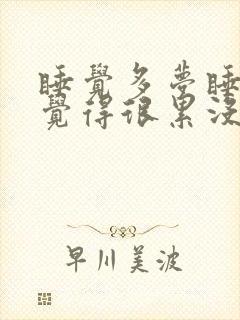 睡覺多夢睡
覺得很累沒
早川美波